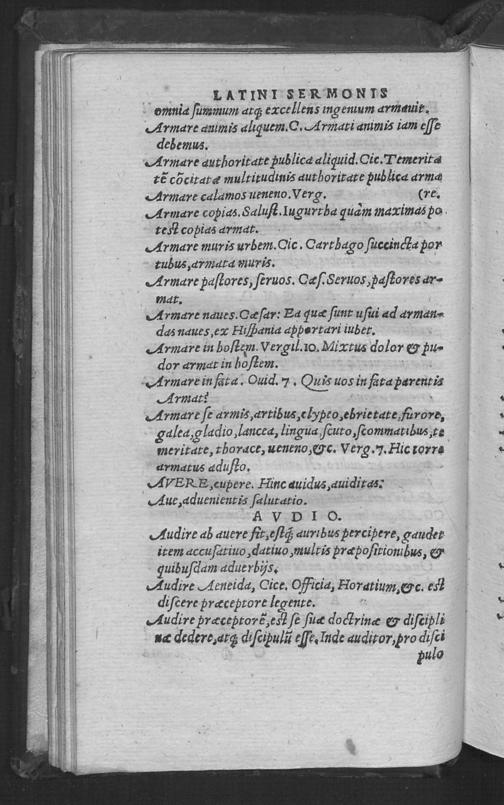 LATINI SERMONIS
omnia summum atq; excellens ingenium armauit.
Armare animis aliquem. C. Armati animis iam esse
debemus.
Armare authoritate publica aliquid. Cic. Temerita
tē cōcitatæ multitudinis authoritate publica arma
Armare calamos ueneno. Verg. (re.
Armare copias. Salust. Iugurtha quàm maximas po
test copias armat.
Armare muris urbem. Cic. Carthago succincta por
tubus, armata muris.
Armare pastores, seruos. Cæs. Seruos, pastores ar-
mat.
Armare naues. Cæsar: Ea quæ sunt usui ad arman-
das naues, ex Hispania apportari iubet.
Armare in hostem. Vergil. 10. Mixtus dolor & pu-
dor armat in hostem.
Armare in fata. Ouid. 7. Quis uos in fata parentis
Armat?
Armare se armis, artibus, clypeo, ebrietate, furore,
galea, gladio, lancea, lingua, scuto, scommatibus, te
meritate, thorace, ueneno, &c. Verg. 7. Hic torre
armatus adusto.
AVERE, cupere. Hinc auidus, auiditas.
Aue, aduenientis salutatio.
AVDIO.
Audire ab auere fit, estq; auribus percipere, gaudet
item accusatiuo, datiuo, multis præpositionibus, &
quibusdam aduerbijs.
Audire Aeneida, Cice. Officia, Horatium, &c. est
discere præceptore legente.
Audire præceptorē, est se suæ doctrinæ & discipli
næ dedere, atq; discipulū esse. Inde auditor, pro disci
pulo